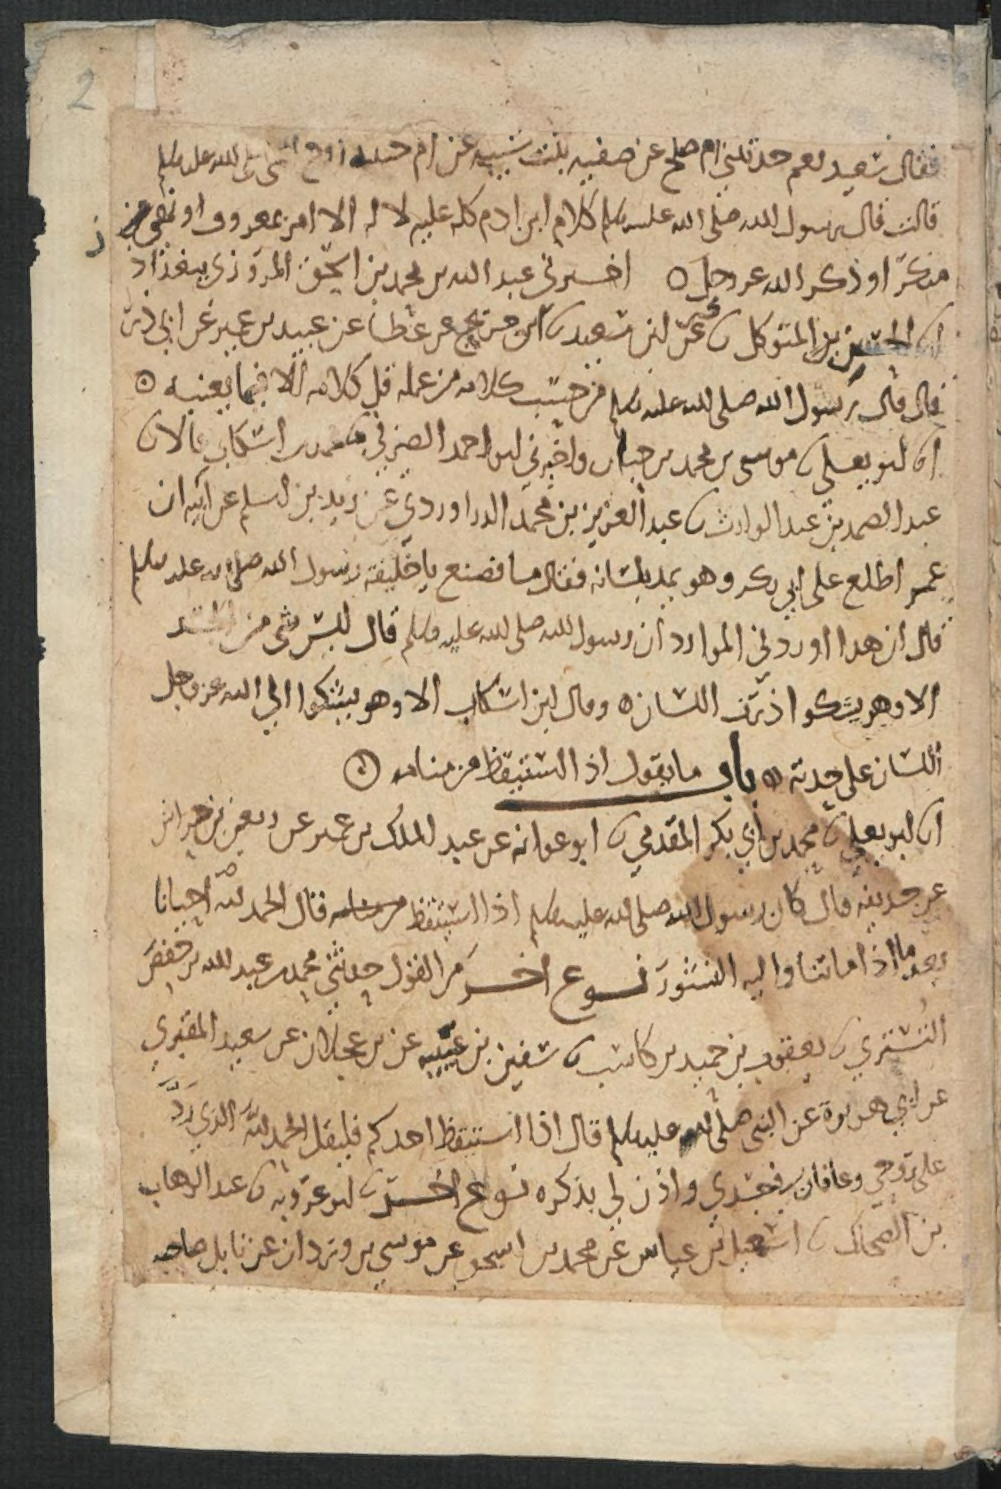 2
فقال سعيد نعم حدثتني ام صلح عن صفيه بنت شيبه عن ام حبيبه زوج النبي صلى الله عليه وسلم
قالت قال رسول الله صلى الله عليه وسلم كلام ابن ادم كله عليه لا له الا امر بمعروف او نهي عن
منكر او ذكر الله عز وجل ۝ اخبرني عبد الله بن محمد بن اسحق المروزي ببغداد
الحسين بن المتوكل يحيى بن سعيد ابن جريج عن عطا عن عبيد بن عمير عن ابي ذر
قال قال رسول الله صلى الله عليه وسلم من حسب كلامه من عمله قل كلامه الا فيما يعنيه ۝
ابو يعلى موسى بن محمد بن حيان واخبرني ابو احمد الصيرفي اشكاب قالا
عبد الصمد بن عبد الوارث عبد العزيز بن محمد الدراوردي عن زيد بن اسلم عن ابيه ان
عمر اطلع على ابي بكر وهو يمد لسانه فقال ما تصنع يا خليفه رسول الله صلى الله عليه وسلم
قال ان هذا اوردني الموارد ان رسول الله صلى الله عليه وسلم قال ليس شي من الجسد
الا وهو يشكوا ذرب اللسان ۝ وقال ابن اشكاب الا وهو يشكوا الي الله عز وجل
اللسان على حدته ۝ باب ما يقول اذا استيقظ من منامه ۝
ابو يعلى محمد بن ابي بكر المقدمي ابو عوانه عن عبد الملك بن عمير عن ربعي بن حراش
عن حذيفه قال كان رسول الله صلى الله عليه وسلم اذا استيقظ من منامه قال الحمد لله احيانا
بعد ما اذ اماتنا واليه النشور نوع اخر من القول حدثني محمد بن عبد الله بن حفص
التستري يعقوب بن حميد بن كاسب سفين بن عيينه عن بن عجلان عن سعيد المقبري
عن ابي هريرة عن النبي صلى الله عليه وسلم قال اذا استيقظ احدكم فليقل الحمد لله الذي رد
على روحي وعافاني في جسدي واذن لي بذكره نوع اخر ابو عروبه عبد الوهاب
بن الضحاك اسمعيل بن عياش عن محمد بن اسحق عن موسى بن وردان عن نابل صاحب